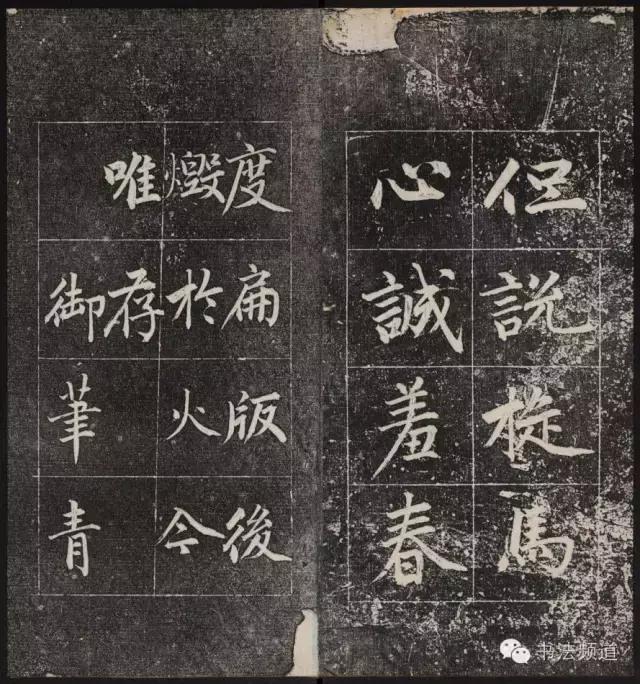 但說旋馬
心誠羞春
度扁版後
燬於火今
唯存
御筆青
书法频道